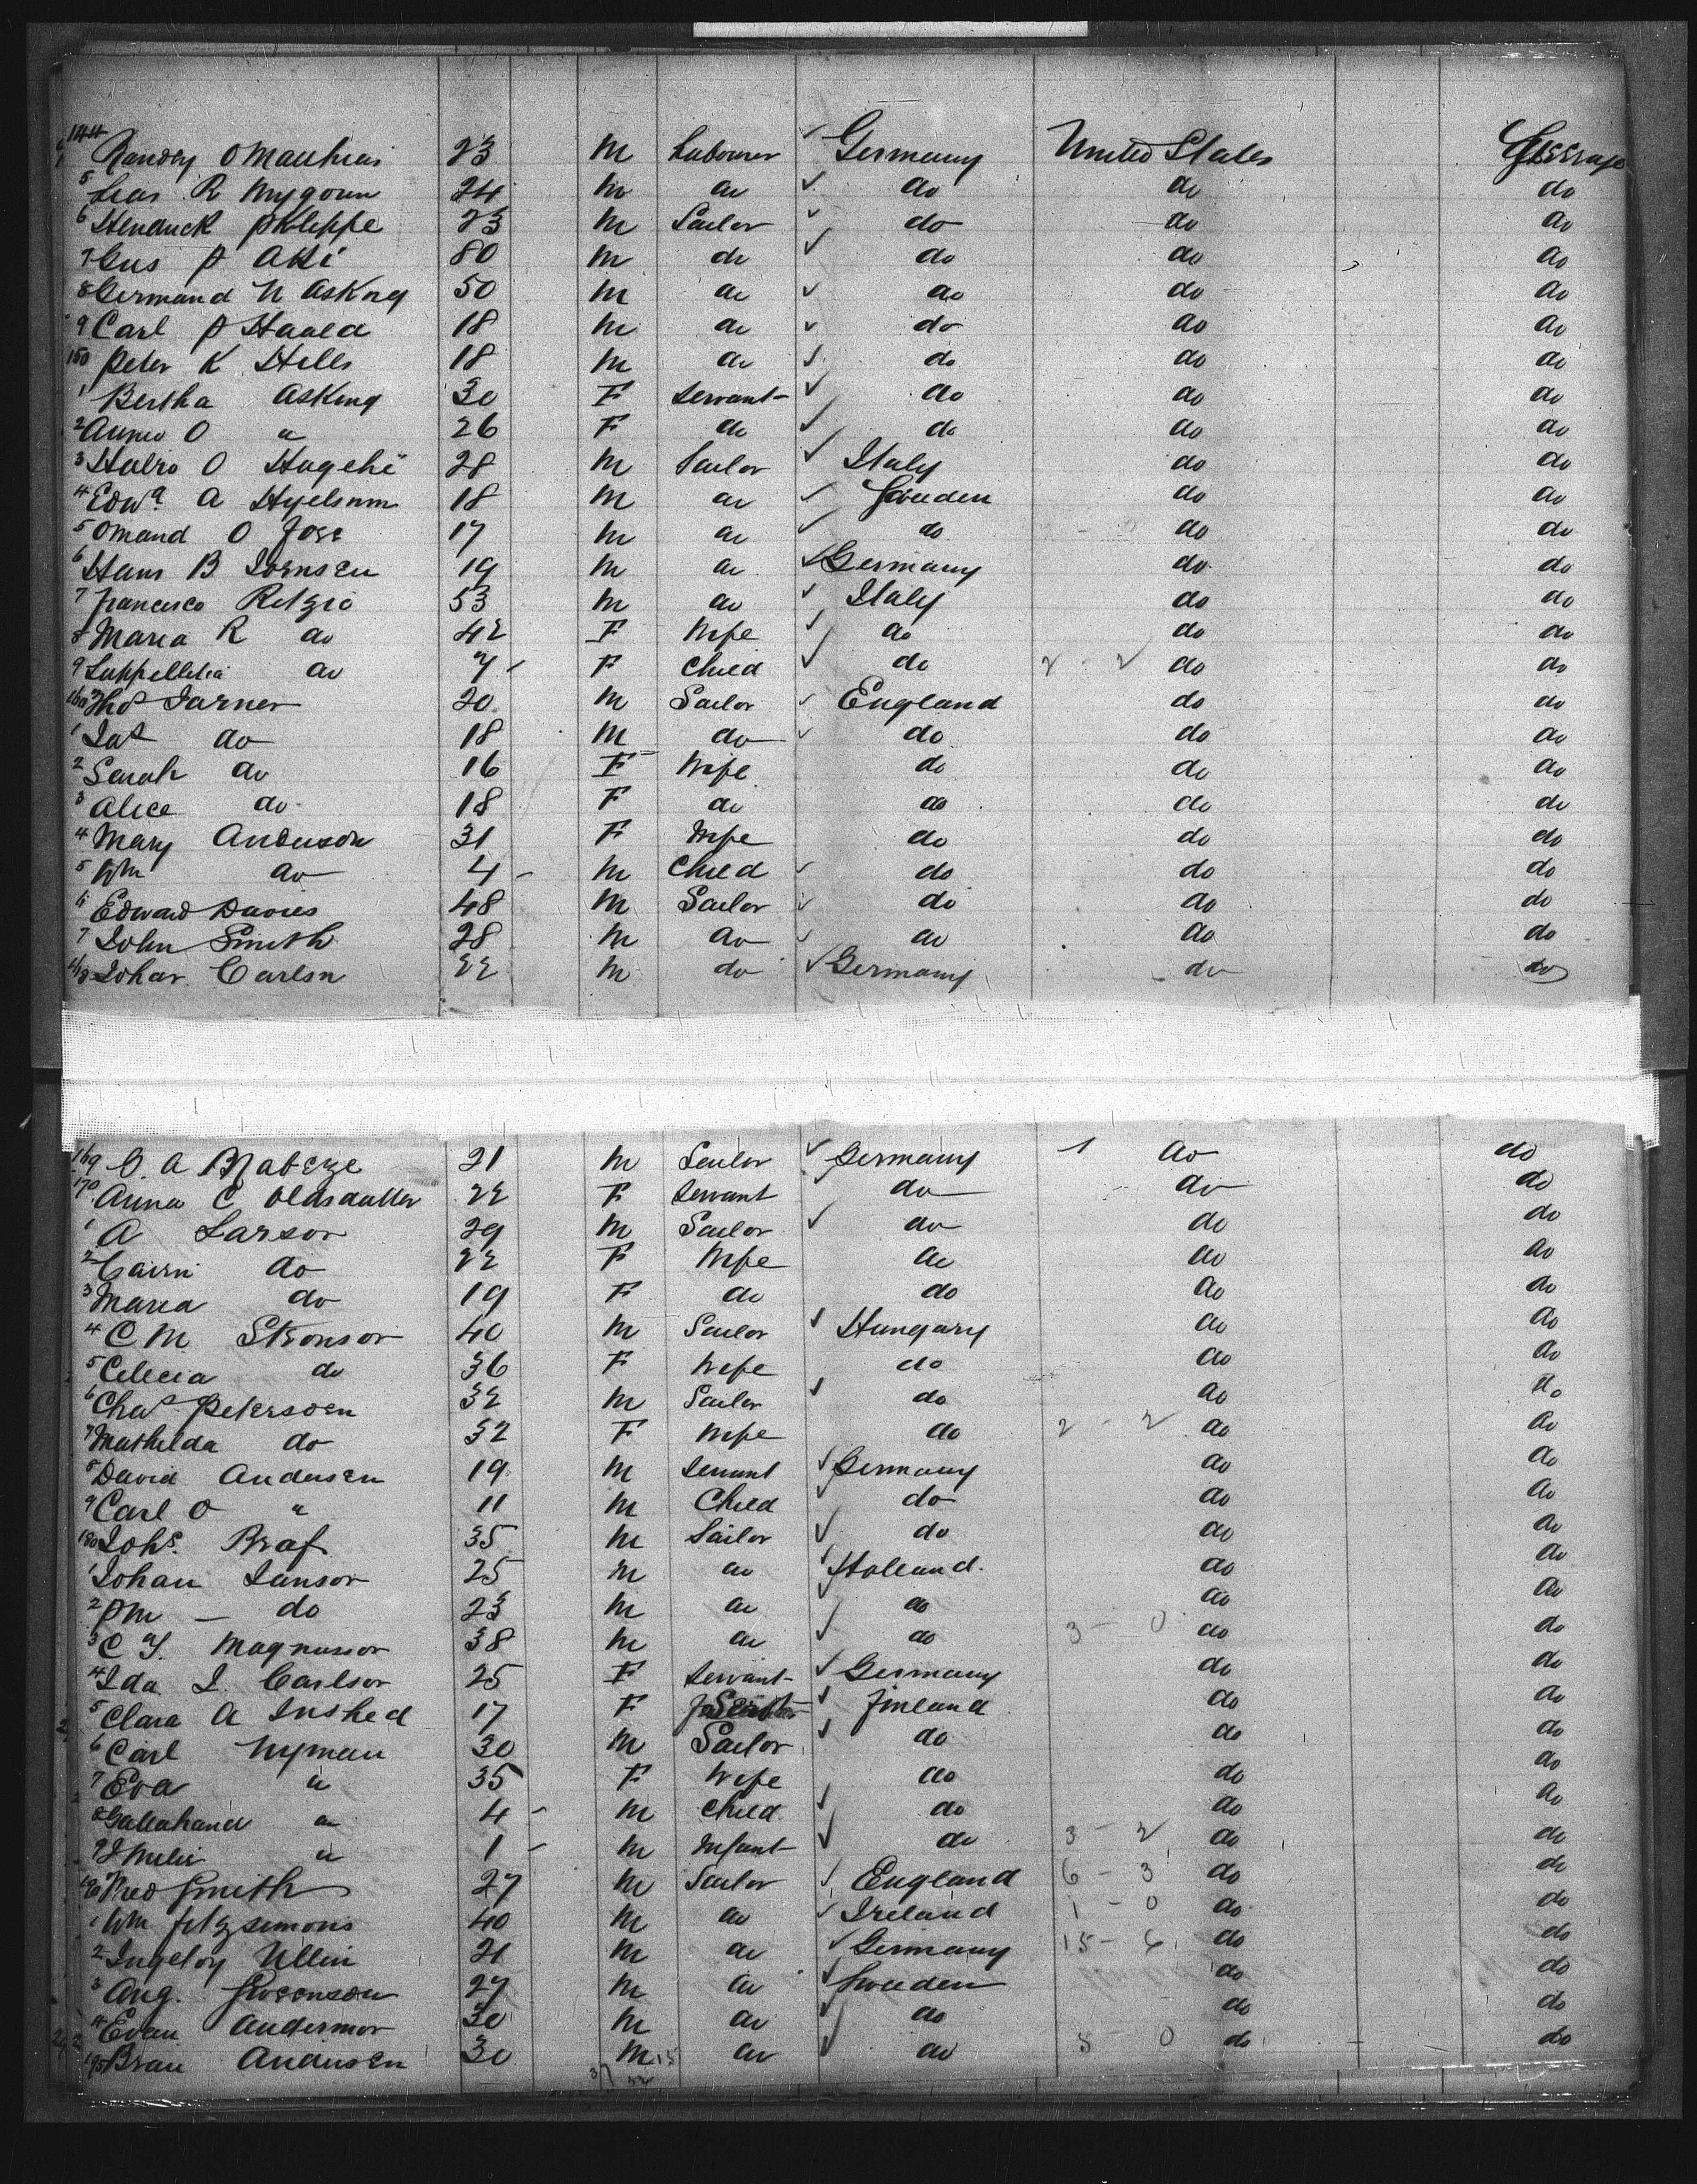 144 Randey O Mauhias 23 M Labourer ✓ Germany United States
5 Leas R Mygoun 24 M do ✓ do do do
6 Henduck P Kleppe 23 M Sailor ✓ do do do
7 Gus P Aski 80 M do ✓ do do do
8 Germand N Asking 50 M do ✓ do do do
9 Carl P Haald 18 M do ✓ do do do
150 Peter K Hells 18 M do ✓ do do do
1 Bertha Asking 30 F Servant ✓ do do do
2 Anna O " 26 F do ✓ do do do
3 Halro O Hagehi 28 M Sailor ✓ Italy do do
4 Edwd A Hyelsnm 18 M do ✓ Sweden do do
5 Omand O Jose 17 M do ✓ do do do
6 Hans B Iornsen 19 M do ✓ Germany do do
7 Francesco Retzio 53 M do ✓ Italy do do
8 Maria R do 42 F Wife ✓ do do do
9 do 7 F Child ✓ do 2 - 2 do do
160 Thos Jarner 20 M Sailor ✓ England do do
1 Jas do 18 M do ✓ do do do
2 Sarah do 16 F Wife do do do
3 Alice do 18 F do do do do
4 Mary Anderson 31 F Wife do do do
5 Wm do 4 M Child ✓ do do do
6 Edward Davies 48 M Sailor ✓ do do do
7 John Smith 28 M do ✓ do do do
168 Johan Carlsn 22 M do ✓ Germany do do
169 O. A 21 M Sailor ✓ Germany 1 do do
170 Anna C Olasdatter 22 F Servant do do do
1 A Larson 29 M Sailor ✓ do do do
2 Cairn do 22 F Wife do do do
3 Maria do 19 F do do do do
4 C M Stronsor 40 M Sailor ✓ Hungary do do
5 Celecia do 36 F Wife do do do
6 Chas Petersoen 32 M Sailor ✓ do do do
7 Mathilda do 32 F Wife do 2 - 2 do do
8 David Andersen 19 M Servant ✓ Germany do do
9 Carl O " 11 M Child ✓ do do do
180 Johs. Braf 35 M Sailor ✓ do do do
1 Johan Janson 25 M do ✓ Holland. do do
2 Pm - do 23 M do ✓ do do do
3 C Y. Magnussor 38 M do ✓ do 3 - 0 do do
4 Ida I. Carlson 25 F Servant ✓ Germany do do
5 Clara A Inshed 17 F ✓ Finland do do
6 Carl Nyman 30 M Sailor ✓ do do do
7 Eva " 35 F Wife do do do
8 Gallahand " 4 M Child ✓ do do do
9 " 1 M Infant ✓ do 3 - 2 do do
190 Fred Smith 27 M Sailor ✓ England 6 - 3 do do
1 Wm Fitzsimons 40 M do ✓ Ireland 1 - 0 do do
2 Ingeloy Ullin 21 M do ✓ Germany 15 - 6 do do
3 Aug. Swenson 27 M do ✓ Sweden do do
4 Evan Andermor 30 M do ✓ do do do
195 Brau Andersen 30 M do ✓ do 3 0 do do